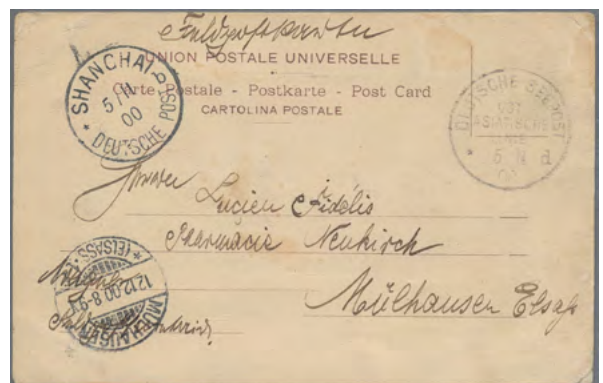 Feldpostkarte
UNION POSTALE UNIVERSELLE
Carte Postale - Postkarte - Post Card
CARTOLINA POSTALE
SHANGHAI
5/11
00
* DEUTSCHE POST
DEUTSCHE SEEPOST
OST
ASIATISCHE
LINIE
* 5 11 d
Herrn
Lucien Fidélis
Pharmacie Neukirch
Mülhausen Elsaß
MÜLHAUSEN
12.12.00.8-9
* (ELSASS) *